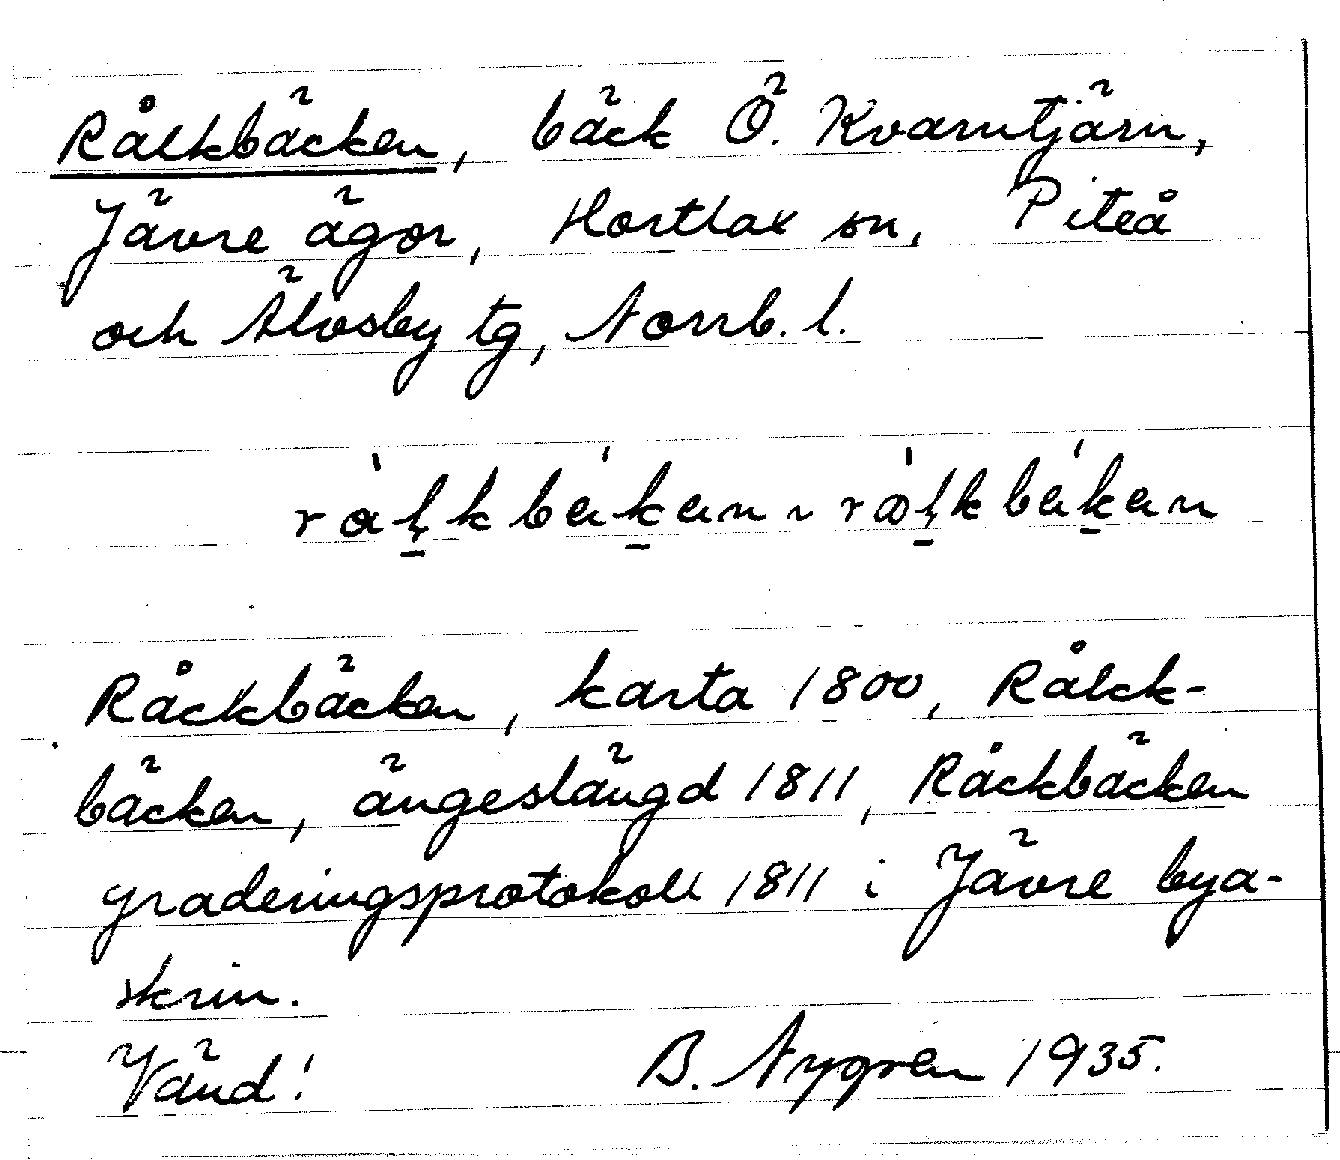 Rålkbäcken, bäck Ö. Kvarntjärn,
Jävre ägor, Hortlax sn, Piteå
och Älvsby tg, Norrb. l.
Råckbäcken, karta 1800, Rålck-
bäcken, ängeslängd 1811, Råckbäcken
graderingsprotokoll 1811 i Jävre bya-
skrin.
Vänd! B. Nygren 1935.